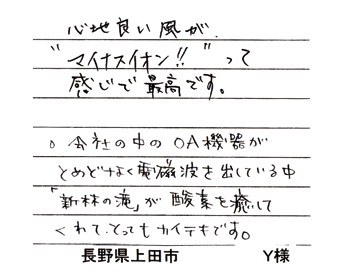 心地良い風が、
"マイナスイオン!!"って
感じで最高です。
。会社の中のOA機器が
とめどなく電磁波を出している中
「新林の滝」が酸素を癒して
くれて、とってもカイテキです。
長野県上田市 Y様